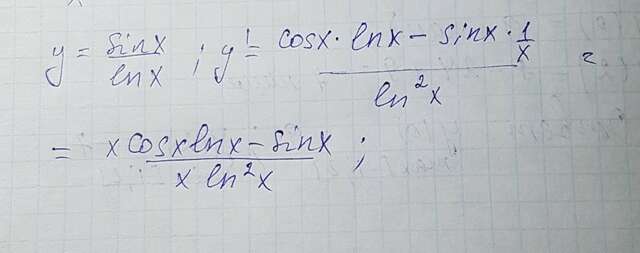 y = sinx / lnx ; y' = (cosx · lnx − sinx · 1/x) / ln²x =
= (x cosx lnx − sinx) / (x ln²x) ;